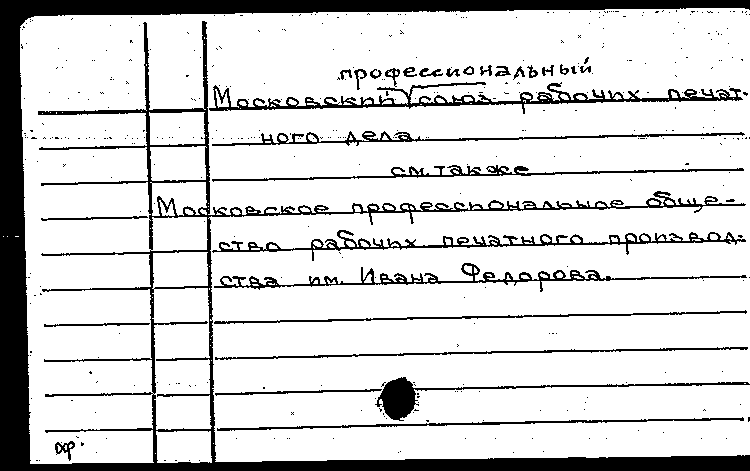 профессиональный
Московский союз рабочих печат-
ного дела.
см. также
Московское профессиональное обще-
ство рабочих печатного производ-
ства им. Ивана Федорова.